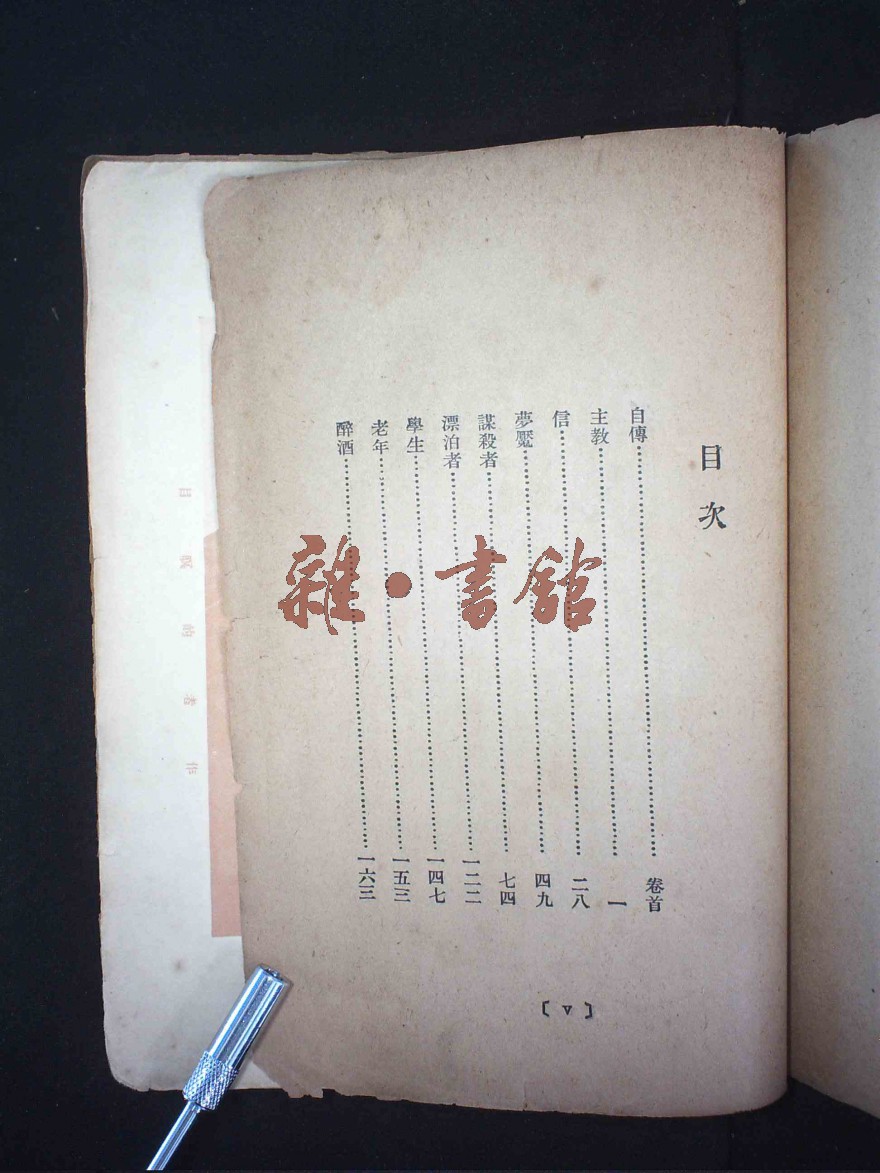 目次
自傳 卷首
主教 一
信 二八
夢魘 四九
謀殺者 七四
漂泊者 一二二
學生 一四七
老年 一五三
醉酒 一六三
〔V〕
雜·書館